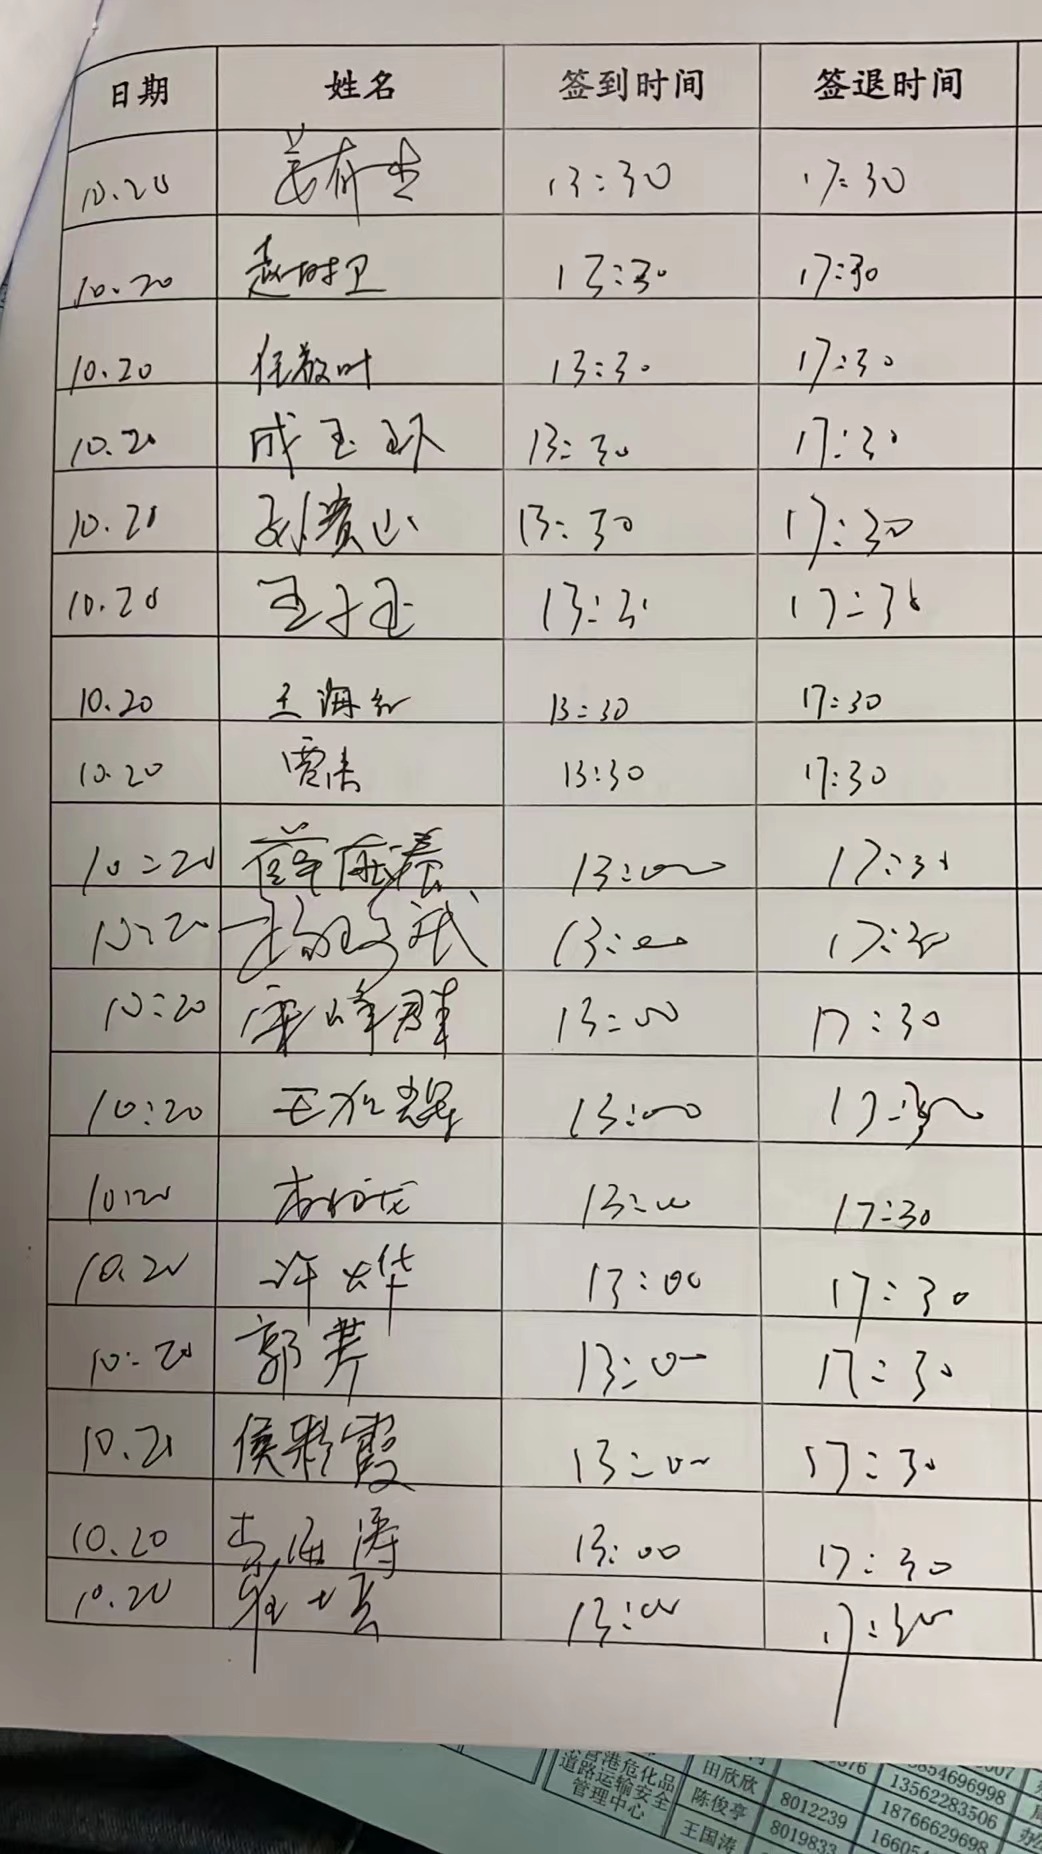 日期 姓名 签到时间 签退时间
10.20 姜有生 13:30 17:30
10.20 赵时卫 13:30 17:30
10.20 任敬叶 13:30 17:30
10.20 成玉环 13:30 17:30
10.20 孙贵山 13:30 17:30
10.20 王子玉 13:30 17:30
10.20 王海红 13:30 17:30
10.20 贾涛 13:30 17:30
10:20 薛庆春 13:00 17:30
10:20 13:00 17:30
10:20 宋峰群 13:00 17:30
10:20 王加辉 13:00 17:30
10:20 13:00 17:30
10.20 许烨 13:00 17:30
10:20 郭芹 13:00 17:30
10.20 侯彩霞 13:00 17:30
10.20 李海涛 13:00 17:30
10.20 13:00 17:30
营港危化品
道路运输安全
管理中心
田欣欣 8012239 13562283506
陈俊亭 8019833 18766629698
王国涛